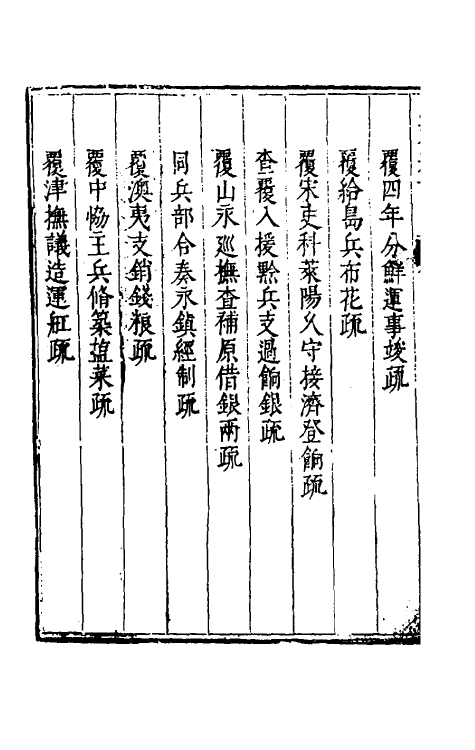 覆四年分鮮運事竣疏
覆給島兵布花疏
覆宋吏科萊陽久守接濟登餉疏
查覆入援黔兵支過餉銀疏
覆山永巡撫查補原借銀兩疏
同兵部合奏永鎮經制疏
覆澳夷支銷錢粮疏
覆中協王兵俻築塩菜疏
覆津撫議造運舡疏